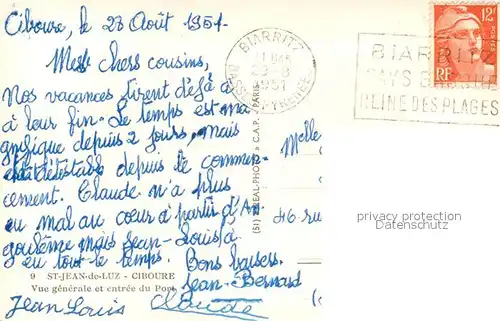 Ciboure, le 23 Août 1951-
Mes chers cousins,
Nos vacances tirent déjà à
à leur fin. Le temps est ma
gnifique depuis 2 jours, mais
était détestable depuis le commen-
cement. Claude n'a plus
eu mal au cœur à partir d'An
goulême mais Jean-Louis l'a
eu tout le temps. Bons baisers.
Jean-Bernard
9 ST-JEAN-de-LUZ - CIBOURE
Vue générale et entrée du Port
Jean Louis Claude
(51) « REAL-PHOTO » C.A.P. - PARIS
BIARRITZ
23-8
1951
BSSES PYRENEES
BIARRITZ
PAYS BASQUE
REINE DES PLAGES
12F
POSTES
RF
Melle
46 ru
privacy protection
Datenschutz